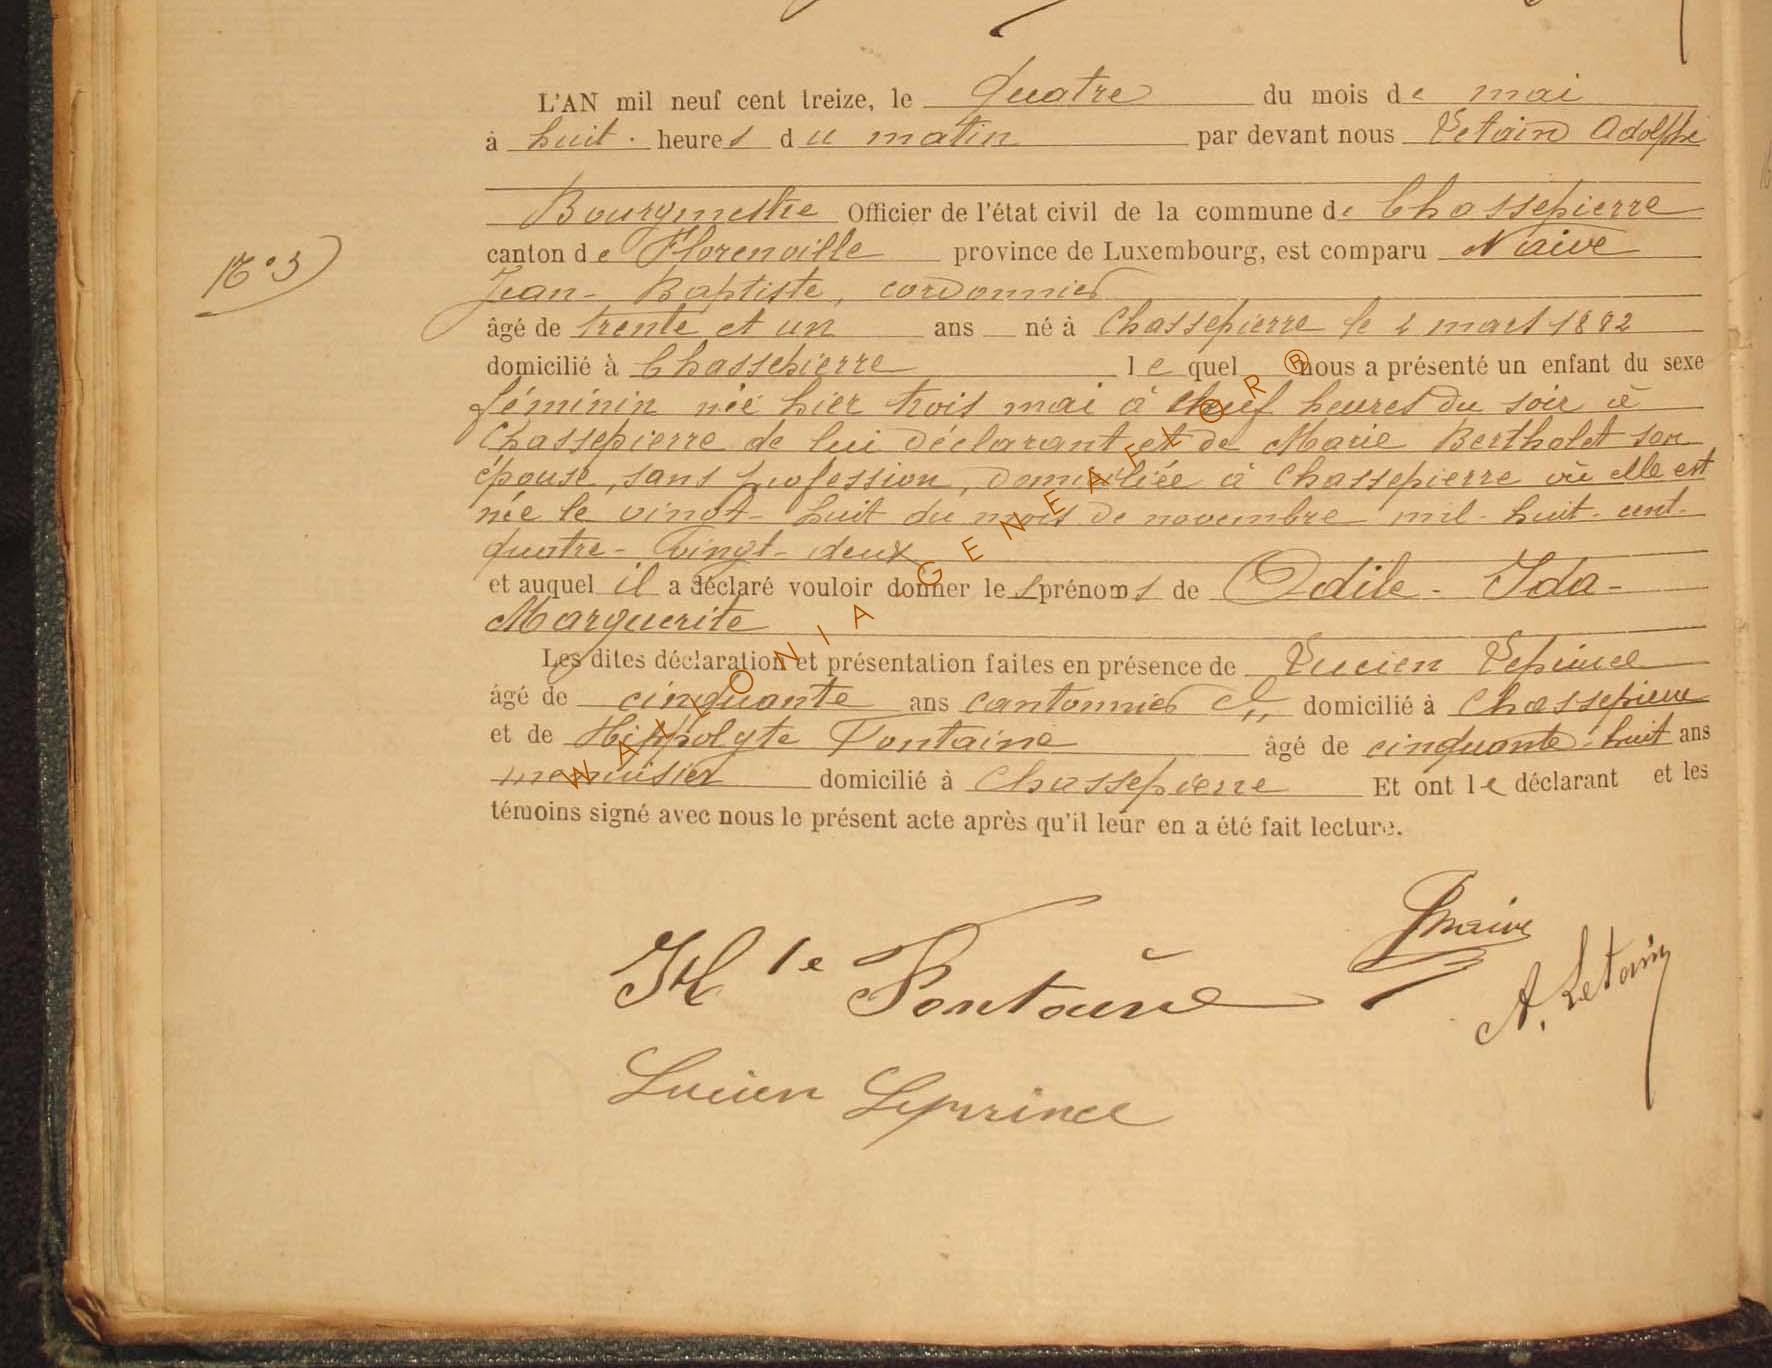 L'AN mil neuf cent treize, le Quatre du mois de mai
à huit heures du matin par devant nous Letain Adolphe
Bourgmestre Officier de l'état civil de la commune de Chassepierre
canton de Florenville province de Luxembourg, est comparu Naive
N° 3
Jean-Baptiste, cordonnier
âgé de trente et un ans né à Chassepierre le 2 mars 1882
domicilié à Chassepierre lequel nous a présenté un enfant du sexe
féminin née hier trois mai à heures du soir à
Chassepierre de lui déclarant et de Marie Bertholet son
épouse, sans profession, domiciliée à Chassepierre où elle est
née le vingt-huit du mois de novembre mil-huit-cent-
quatre-vingt-deux
et auquel il a déclaré vouloir donner les prénoms de Odile-Ida-
Marguerite
Les dites déclaration et présentation faites en présence de Lucien Leprince
âgé de cinquante ans cantonnier domicilié à Chassepierre
et de Hippolyte Fontaine âgé de cinquante-huit ans
menuisier domicilié à Chassepierre Et ont le déclarant et les
témoins signé avec nous le présent acte après qu'il leur en a été fait lecture.
JNaive
Hte Fontaine
A. Letain
Lucien Leprince
WALLONIA - GENEAFLOR ®